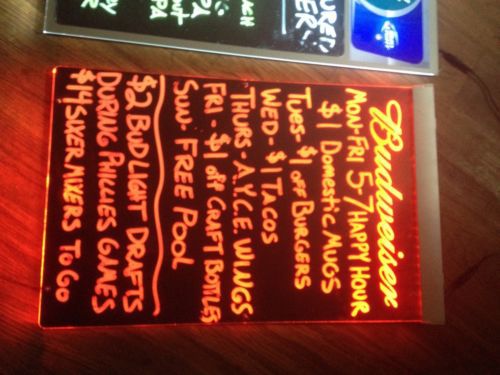 Budweiser
MON-FRI 5-7 HAPPY HOUR
$1 DOMESTIC MUGS
TUES- $1 OFF BURGERS
WED- $1 TACOS
THURS- A.Y.C.E. WINGS
FRI- $1 off CRAFT BOTTLES
SUN- FREE POOL
$2 BUD LIGHT DRAFTS
DURING PHILLIES GAMES
$14 SIXER MIXERS TO GO